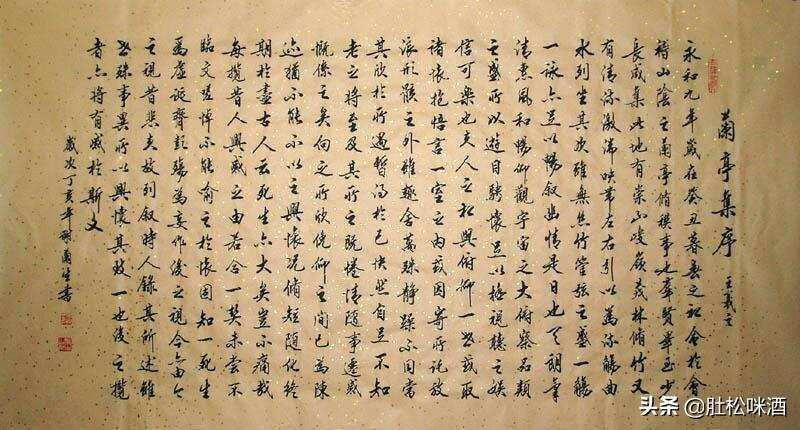 蘭亭集序 王羲之
永和九年歲在癸丑暮春之初會於會
稽山陰之蘭亭脩稧事也羣賢畢至少
長咸集此地有崇山峻嶺茂林脩竹又
有清流激湍映帶左右引以為流觴曲
水列坐其次雖無絲竹管弦之盛一觴
一詠亦足以暢敘幽情是日也天朗氣
清惠風和暢仰觀宇宙之大俯察品類
之盛所以遊目騁懷足以極視聽之娛
信可樂也夫人之相與俯仰一世或取
諸懷抱悟言一室之內或因寄所託放
浪形骸之外雖趣舍萬殊靜躁不同當
其欣於所遇暫得於己快然自足不知
老之將至及其所之既惓情隨事遷感
慨係之矣向之所欣俛仰之間已為陳
迹猶不能不以之興懷況脩短隨化終
期於盡古人云死生亦大矣豈不痛哉
每攬昔人興感之由若合一契未嘗不
臨文嗟悼不能喻之於懷固知一死生
為虛誕齊彭殤為妄作後之視今亦由今
之視昔悲夫故列敘時人錄其所述雖
世殊事異所以興懷其致一也後之攬
者亦將有感於斯文
歲次丁亥年
头条 @肚松咪酒